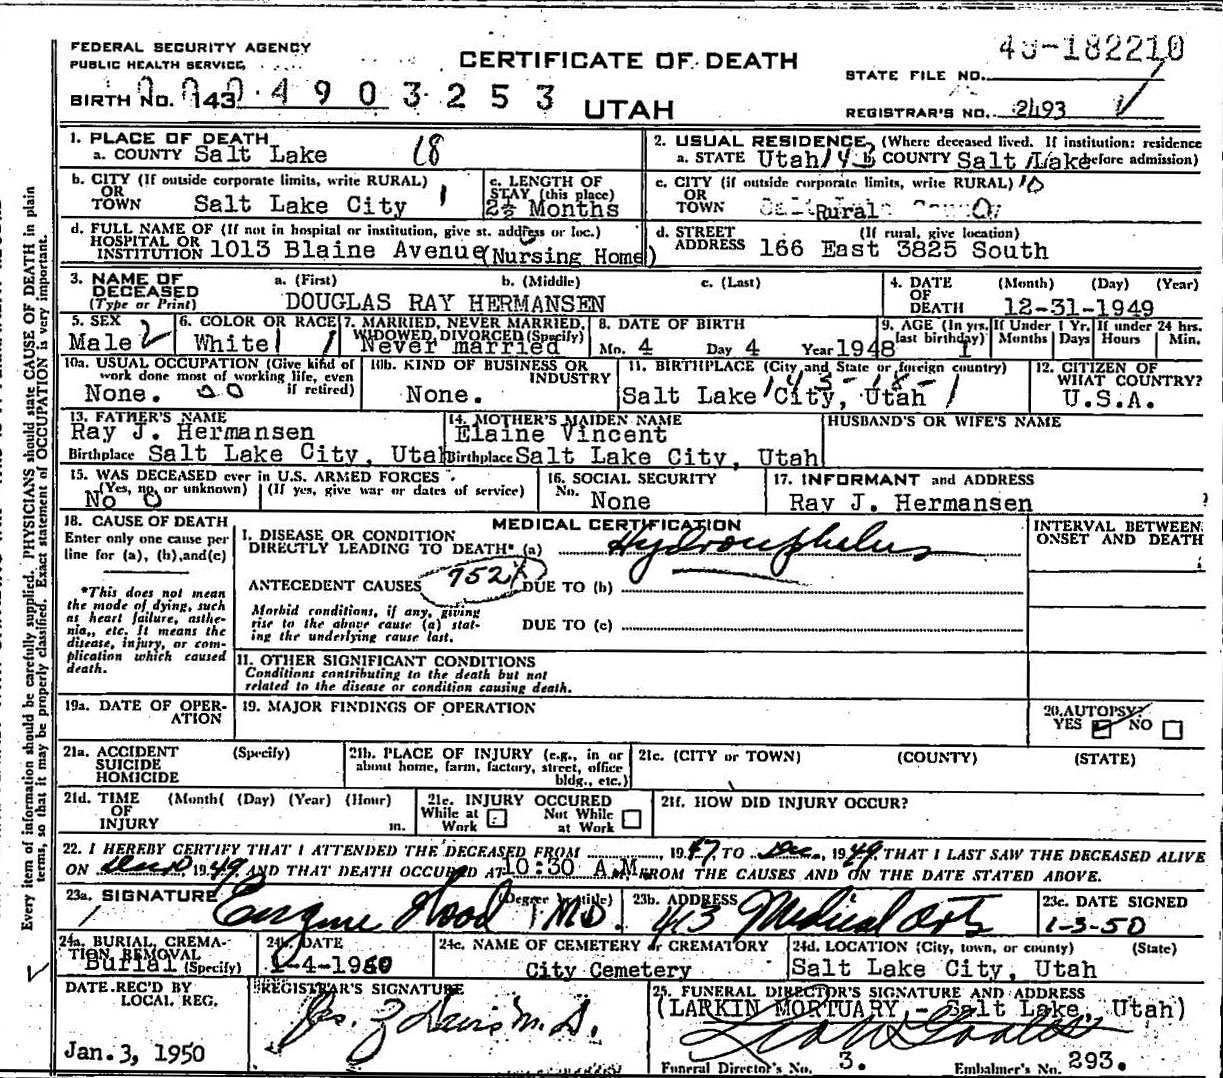 FEDERAL SECURITY AGENCY
PUBLIC HEALTH SERVICE
CERTIFICATE OF DEATH
49-182210
STATE FILE NO.
BIRTH NO. 143 4903253
UTAH
REGISTRAR'S NO. 2493
1. PLACE OF DEATH
a. COUNTY Salt Lake 18
2. USUAL RESIDENCE (Where deceased lived. If institution: residence
a. STATE Utah 143 b COUNTY Salt Lake before admission)
b. CITY (If outside corporate limits, write RURAL)
OR
TOWN Salt Lake City 1
c. LENGTH OF
STAY (this place)
2½ Months
c. CITY (if outside corporate limits, write RURAL) 10
OR
TOWN Rural
d. FULL NAME OF (If not in hospital or institution, give st. address or loc.)
HOSPITAL OR
INSTITUTION 1013 Blaine Avenue (Nursing Home)
d. STREET (If rural, give location)
ADDRESS 166 East 3825 South
3. NAME OF DECEASED (Type or Print)
a. (First) b. (Middle) c. (Last)
DOUGLAS RAY HERMANSEN
4. DATE OF DEATH (Month) (Day) (Year)
12-31-1949
5. SEX
Male 2
6. COLOR OR RACE
White 1
7. MARRIED, NEVER MARRIED,
WIDOWED, DIVORCED (Specify)
Never married 1
8. DATE OF BIRTH
Mo. 4 Day 4 Year 1948
9. AGE (In yrs. last birthday) 1
If Under 1 Yr. Months Days
If under 24 hrs. Hours Min.
10a. USUAL OCCUPATION (Give kind of
work done most of working life, even
if retired)
None. 00
10b. KIND OF BUSINESS OR
INDUSTRY
None.
11. BIRTHPLACE (City and State or foreign country)
143-18-1
Salt Lake City, Utah
12. CITIZEN OF
WHAT COUNTRY?
U.S.A.
13. FATHER'S NAME
Ray J. Hermansen
Birthplace Salt Lake City, Utah
14. MOTHER'S MAIDEN NAME
Elaine Vincent
Birthplace Salt Lake City, Utah
HUSBAND'S OR WIFE'S NAME
15. WAS DECEASED ever in U.S. ARMED FORCES
(Yes, no, or unknown) (If yes, give war or dates of service)
No 0
16. SOCIAL SECURITY
No. None
17. INFORMANT and ADDRESS
Ray J. Hermansen
18. CAUSE OF DEATH
Enter only one cause per
line for (a), (b), and (c)
*This does not mean
the mode of dying, such
as heart failure, asthe-
nia,, etc. It means the
disease, injury, or com-
plication which caused
death.
MEDICAL CERTIFICATION
I. DISEASE OR CONDITION
DIRECTLY LEADING TO DEATH* (a) Hydrocephelus
ANTECEDENT CAUSES 752X DUE TO (b)
Morbid conditions, if any, giving
rise to the above cause (a) stat-
ing the underlying cause last.
DUE TO (c)
11. OTHER SIGNIFICANT CONDITIONS
Conditions contributing to the death but not
related to the disease or condition causing death.
INTERVAL BETWEEN
ONSET AND DEATH
19a. DATE OF OPER-
ATION
19. MAJOR FINDINGS OF OPERATION
20. AUTOPSY?
YES NO
21a. ACCIDENT (Specify)
SUICIDE
HOMICIDE
21b. PLACE OF INJURY (e.g., in or
about home, farm, factory, street, office
bldg., etc.)
21c. (CITY or TOWN) (COUNTY) (STATE)
21d. TIME (Month( (Day) (Year) (Hour)
OF
INJURY m.
21e. INJURY OCCURED
While at Work Not While at Work
21f. HOW DID INJURY OCCUR?
22. I HEREBY CERTIFY THAT I ATTENDED THE DECEASED FROM 1947 TO Dec., 1949, THAT I LAST SAW THE DECEASED ALIVE
ON 1949 AND THAT DEATH OCCURED AT 10:30 A.M. FROM THE CAUSES AND ON THE DATE STATED ABOVE.
23a. SIGNATURE (Degree or title)
Eugene Wood MD.
23b. ADDRESS
413 Medical Arts
23c. DATE SIGNED
1-3-50
24a. BURIAL, CREMA-
TION, REMOVAL
Burial (Specify)
24b. DATE
1-4-1950
24c. NAME OF CEMETERY or CREMATORY
City Cemetery
24d. LOCATION (City, town, or county) (State)
Salt Lake City, Utah
DATE REC'D BY
LOCAL REG.
Jan. 3, 1950
REGISTRAR'S SIGNATURE
25. FUNERAL DIRECTOR'S SIGNATURE AND ADDRESS
(LARKIN MORTUARY - Salt Lake, Utah)
Funeral Director's No. 3. Embalmer's No. 293.
Every item of information should be carefully supplied. PHYSICIANS should state CAUSE OF DEATH in plain
terms, so that it may be properly classified. Exact statement of OCCUPATION is very important.